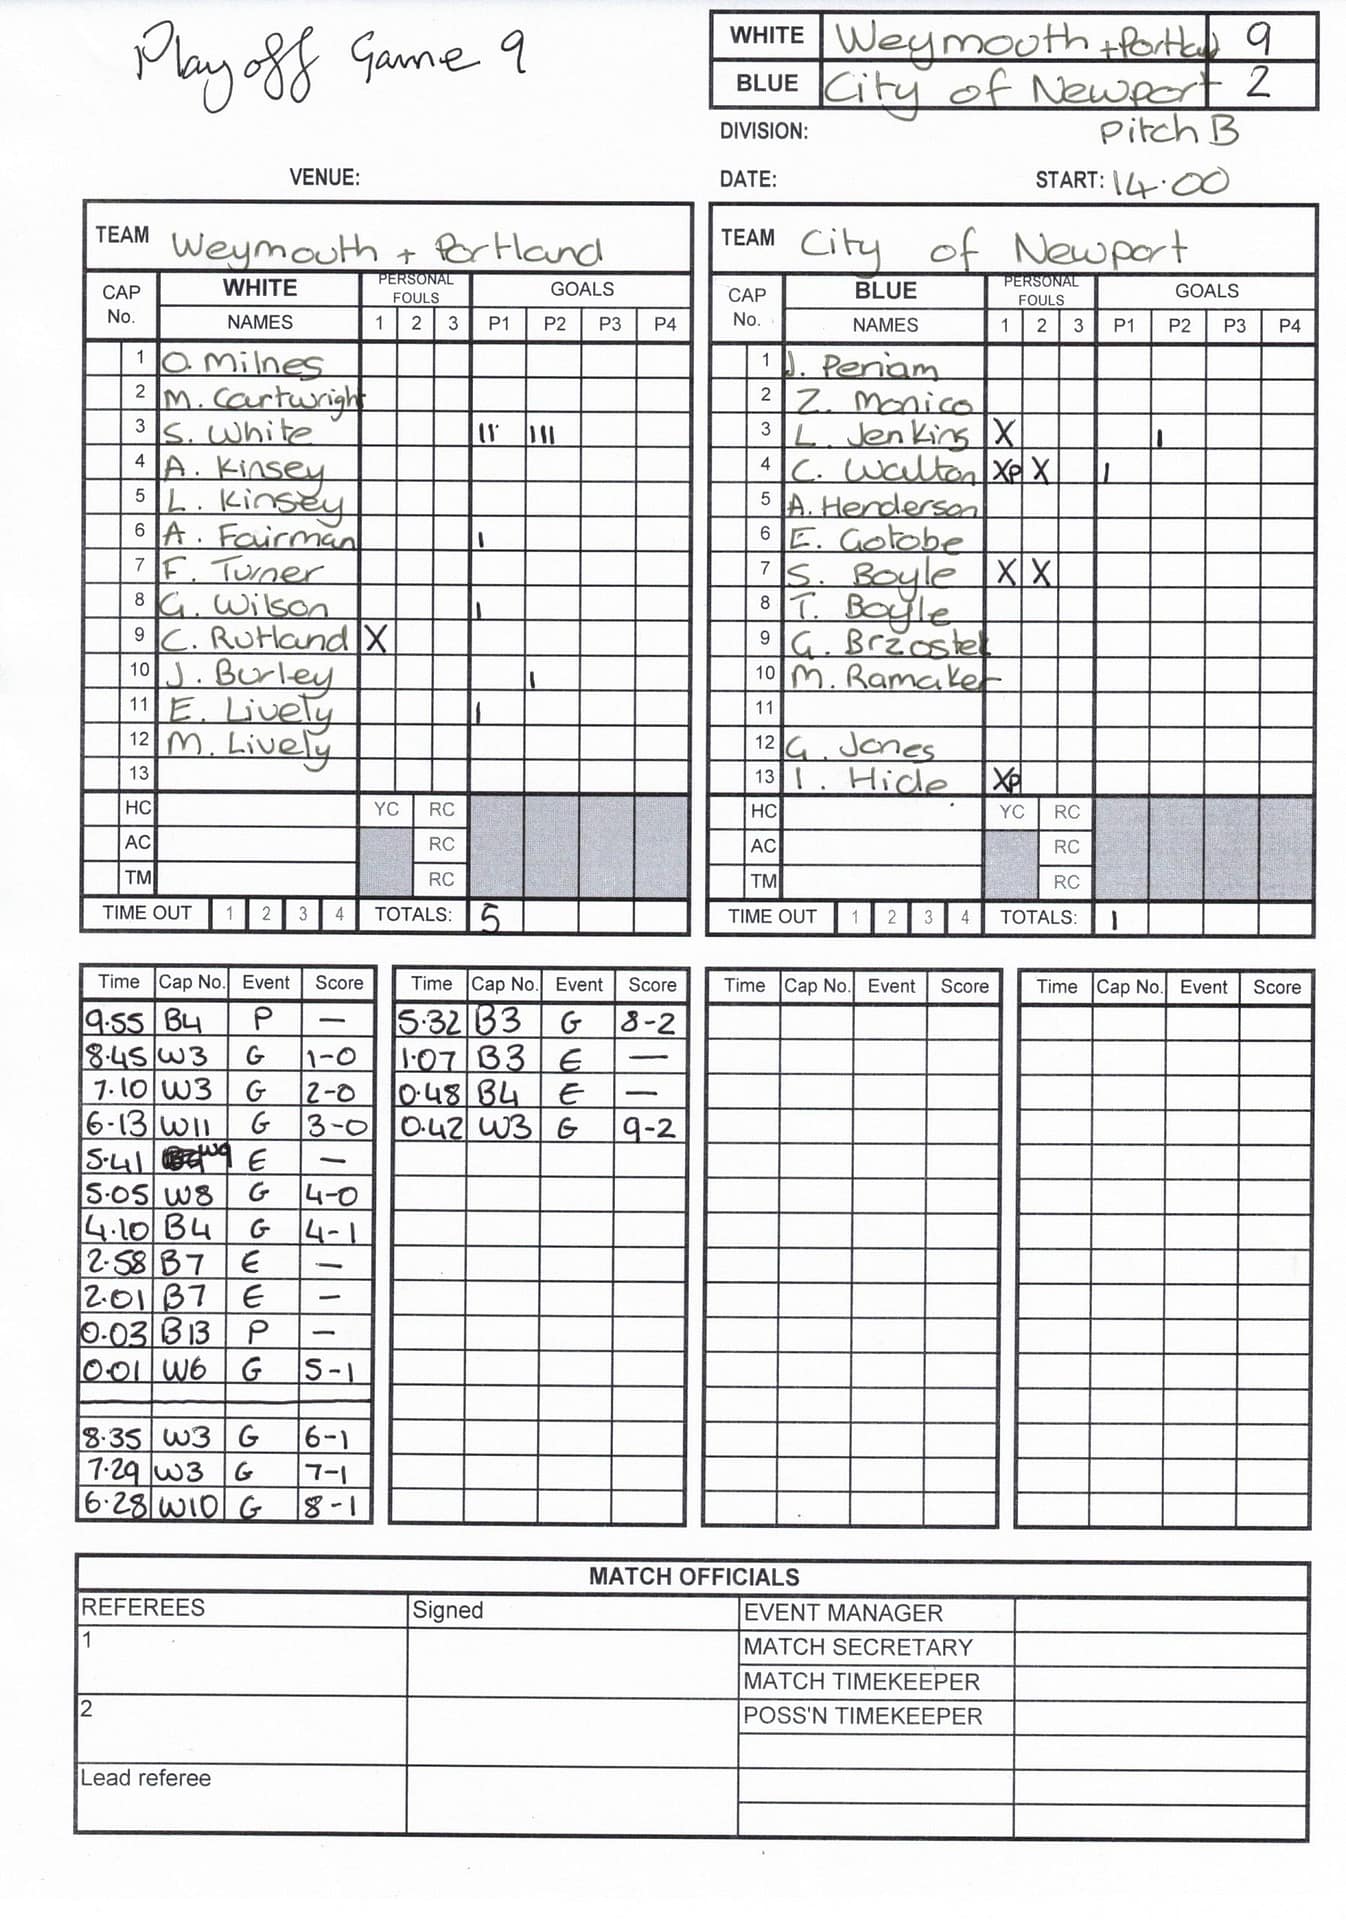 Playoff Game 9
WHITE Weymouth + Portland 9
BLUE City of Newport 2
DIVISION: Pitch B
VENUE: DATE: START: 14.00
TEAM Weymouth + Portland
CAP No. WHITE PERSONAL FOULS GOALS
NAMES 1 2 3 P1 P2 P3 P4
1 O. Milnes
2 M. Cartwright
3 S. White II III
4 A. Kinsey
5 L. Kinsey
6 A. Fairman I
7 F. Turner
8 G. Wilson I
9 C. Rutland X
10 J. Burley I
11 E. Lively I
12 M. Lively
13
HC YC RC
AC RC
TM RC
TIME OUT 1 2 3 4 TOTALS: 5
TEAM City of Newport
CAP No. BLUE PERSONAL FOULS GOALS
NAMES 1 2 3 P1 P2 P3 P4
1 J. Periam
2 Z. Monico
3 L. Jenkins X I
4 C. Walton XP X I
5 A. Henderson
6 E. Gotobe
7 S. Boyle X X
8 T. Boyle
9 G. Brzostek
10 M. Ramaker
11
12 G. Jones
13 I. Hide XP
HC YC RC
AC RC
TM RC
TIME OUT 1 2 3 4 TOTALS: 1
Time Cap No. Event Score
9.55 B4 P —
8.45 W3 G 1-0
7.10 W3 G 2-0
6-13 W11 G 3-0
5.41 W9 E —
5.05 W8 G 4-0
4.10 B4 G 4-1
2.58 B7 E —
2.01 B7 E —
0.03 B13 P —
0.01 W6 G 5-1
8.35 W3 G 6-1
7.29 W3 G 7-1
6.28 W10 G 8-1
Time Cap No. Event Score
5.32 B3 G 8-2
1.07 B3 E —
0.48 B4 E —
0.42 W3 G 9-2
Time Cap No. Event Score
Time Cap No. Event Score
MATCH OFFICIALS
REFEREES Signed EVENT MANAGER
1 MATCH SECRETARY
MATCH TIMEKEEPER
2 POSS'N TIMEKEEPER
Lead referee